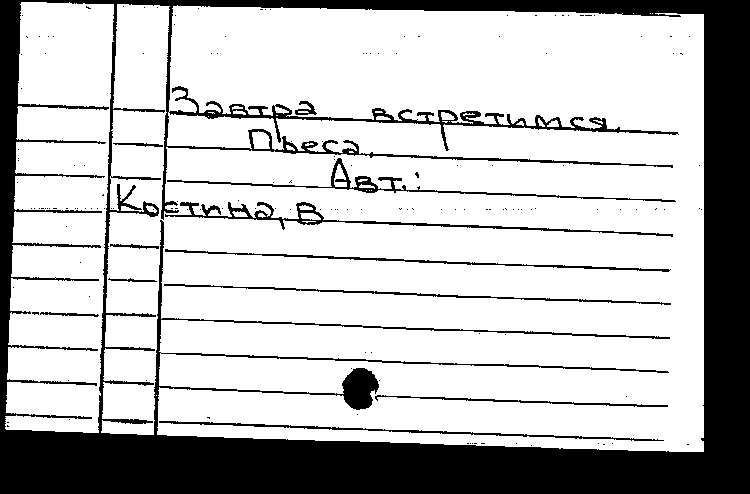 Завтра встретимся.
Пьеса.
Авт.:
Костина, В